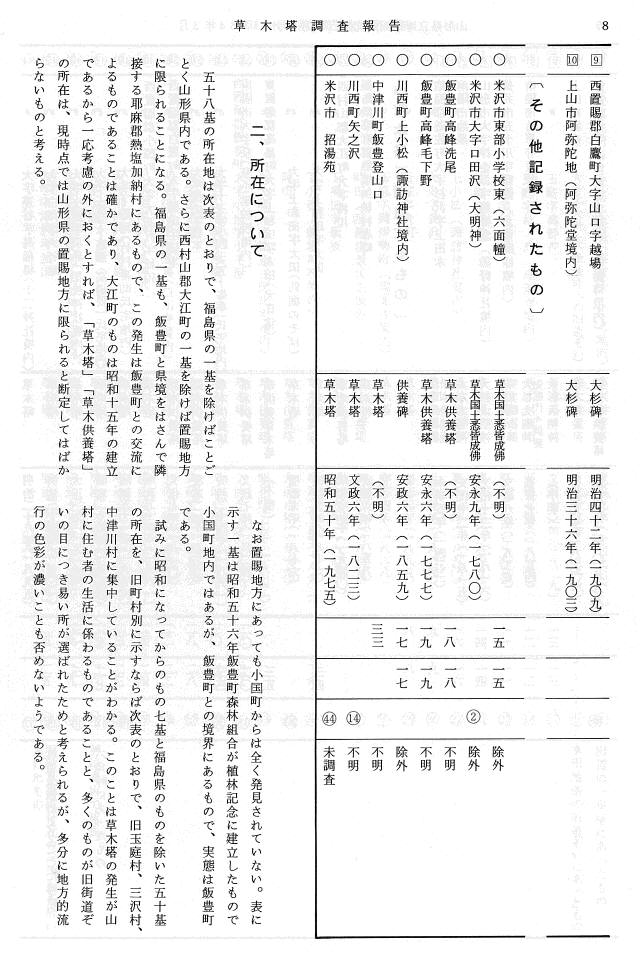 草木塔調査報告
8
⑨ 西置賜郡白鷹町大字山口字越場 大杉碑 明治四十二年(一九〇九)
⑩ 上山市阿弥陀地(阿弥陀堂境内) 大杉碑 明治三十六年(一九〇三)
〔その他記録されたもの〕
○ 米沢市東部小学校東(六面幢) 草木国土悉皆成佛 (不明) 一五 一五 除外
○ 米沢市大字口田沢(大明神) 草木国土悉皆成佛 安永九年(一七八〇) ② 除外
○ 飯豊町高峰洗尾 草木供養塔 (不明) 一八 一八 不明
○ 飯豊町高峰毛下野 草木供養塔 安永六年(一七七七) 一九 一九 不明
○ 川西町上小松(諏訪神社境内) 供養碑 安政六年(一八五九) 一七 一七 除外
○ 中津川町飯豊登山口 草木塔 (不明) 三三 不明
○ 川西町矢之沢 草木塔 文政六年(一八二三) ⑭ 不明
○ 米沢市 招湯苑 草木塔 昭和五十年(一九七五) ㊹ 未調査
二、所在について
五十八基の所在地は次表のとおりで、福島県の一基を除けばことご
とく山形県内である。さらに西村山郡大江町の一基を除けば置賜地方
に限られることになる。福島県の一基も、飯豊町と県境をはさんで隣
接する耶麻郡熱塩加納村にあるもので、この発生は飯豊町との交流に
よるものであることは確かであり、大江町のものは昭和十五年の建立
であるから一応考慮の外におくとすれば、「草木塔」「草木供養塔」
の所在は、現時点では山形県の置賜地方に限られると断定してはばか
らないものと考える。
なお置賜地方にあっても小国町からは全く発見されていない。表に
示す一基は昭和五十六年飯豊町森林組合が植林記念に建立したもので
小国町地内ではあるが、飯豊町との境界にあるもので、実態は飯豊町
である。
試みに昭和になってからのもの七基と福島県のものを除いた五十基
の所在を、旧町村別に示すならば次表のとおりで、旧玉庭村、三沢村、
中津川村に集中していることがわかる。このことは草木塔の発生が山
村に住む者の生活に係わるものであることと、多くのものが旧街道ぞ
いの目につき易い所が選ばれたためと考えられるが、多分に地方的流
行の色彩が濃いことも否めないようである。